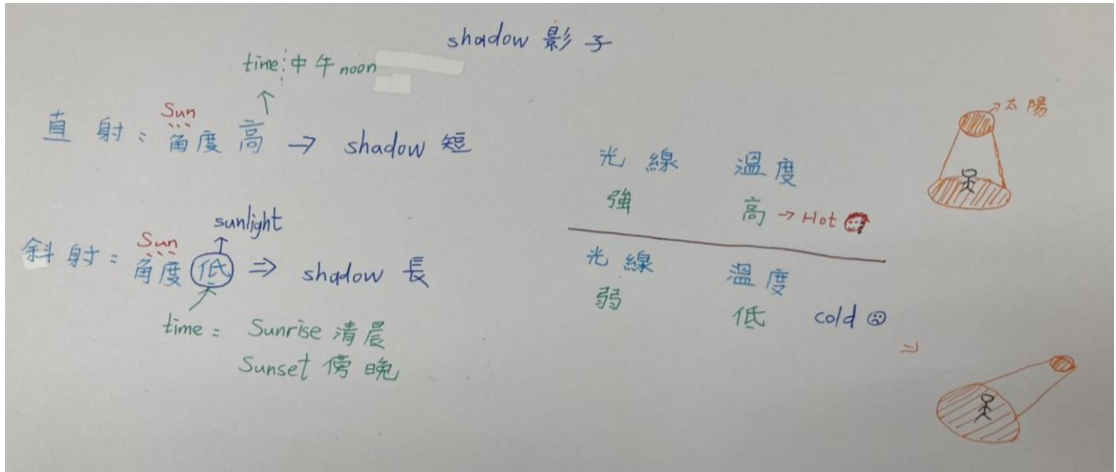 shadow 影子
time:中午 noon
Sun
直射：角度高 → shadow 短
sunlight
Sun
斜射：角度低 ⇒ shadow 長
time： Sunrise 清晨
Sunset 傍晚
光線 溫度
強 高 → Hot
光線 溫度
弱 低 cold ☹
太陽